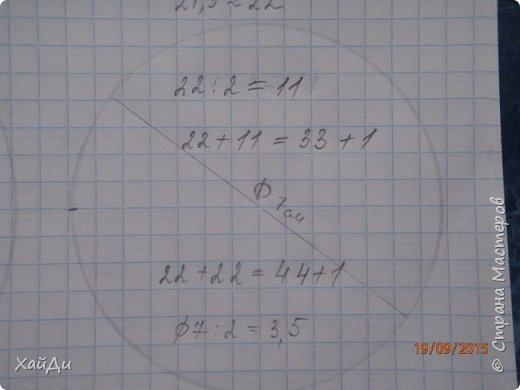 21,9 ≈ 22
22 : 2 = 11
22 + 11 = 33 + 1
Ф 7см
22 + 22 = 44 + 1
Ф7 : 2 = 3,5
19/09/2015
ХайДи
© Страна Мастеров